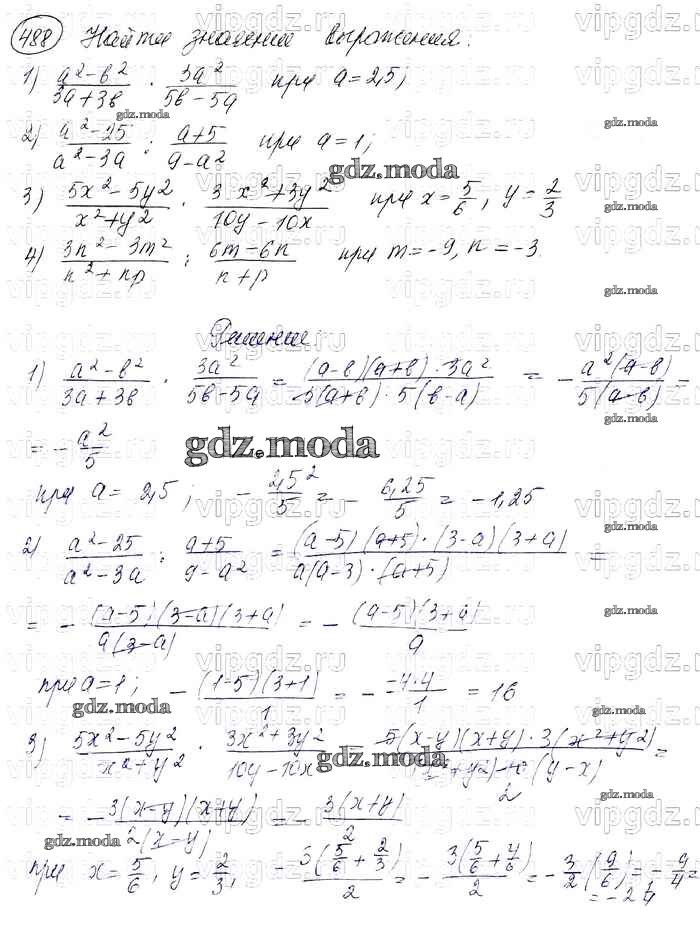 488 Найти значении выражения:
1) (a²-b²)/(3a+3b) · 3a²/(5b-5a) при a=2,5;
2) (a²-25)/(a²-3a) : (a+5)/(9-a²) при a=1;
3) (5x²-5y²)/(x²+y²) · (3x²+3y²)/(10y-10x) при x=5/6, y=2/3
4) (3n²-3m²)/(n²+np) : (6m-6n)/(n+p) при m=-9, n=-3.
Решение
1) (a²-b²)/(3a+3b) · 3a²/(5b-5a) = ((a-b)(a+b)·3a²)/(3(a+b)·5(b-a)) = -(a²(a-b))/(5(a-b)) =
= -a²/5
при a=2,5; -2,5²/5 = -6,25/5 = -1,25
2) (a²-25)/(a²-3a) : (a+5)/(9-a²) = ((a-5)(a+5)·(3-a)(3+a))/(a(a-3)·(a+5)) =
= -((a-5)(3-a)(3+a))/(a(3-a)) = -((a-5)(3+a))/a
при a=1; -((1-5)(3+1))/1 = -(-4·4)/1 = 16
3) (5x²-5y²)/(x²+y²) · (3x²+3y²)/(10y-10x) = (5(x-y)(x+y)·3(x²+y²))/((x²+y²)·10(y-x)) =
2
= -(3(x-y)(x+y))/(2(x-y)) = -(3(x+y))/2
при x=5/6, y=2/3, -(3(5/6+2/3))/2 = -(3(5/6+4/6))/2 = -3/2(9/6) = -9/4 =
= -2 1/4
gdz.moda
vipgdz.ru